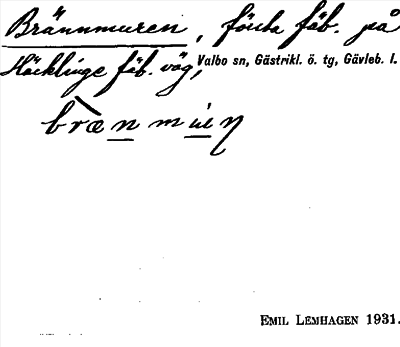 Brännmuren, första fäb. på
Häcklinge fäb. väg, Valbo sn, Gästrikl. ö. tg, Gävleb. l.
EMIL LEMHAGEN 1931.